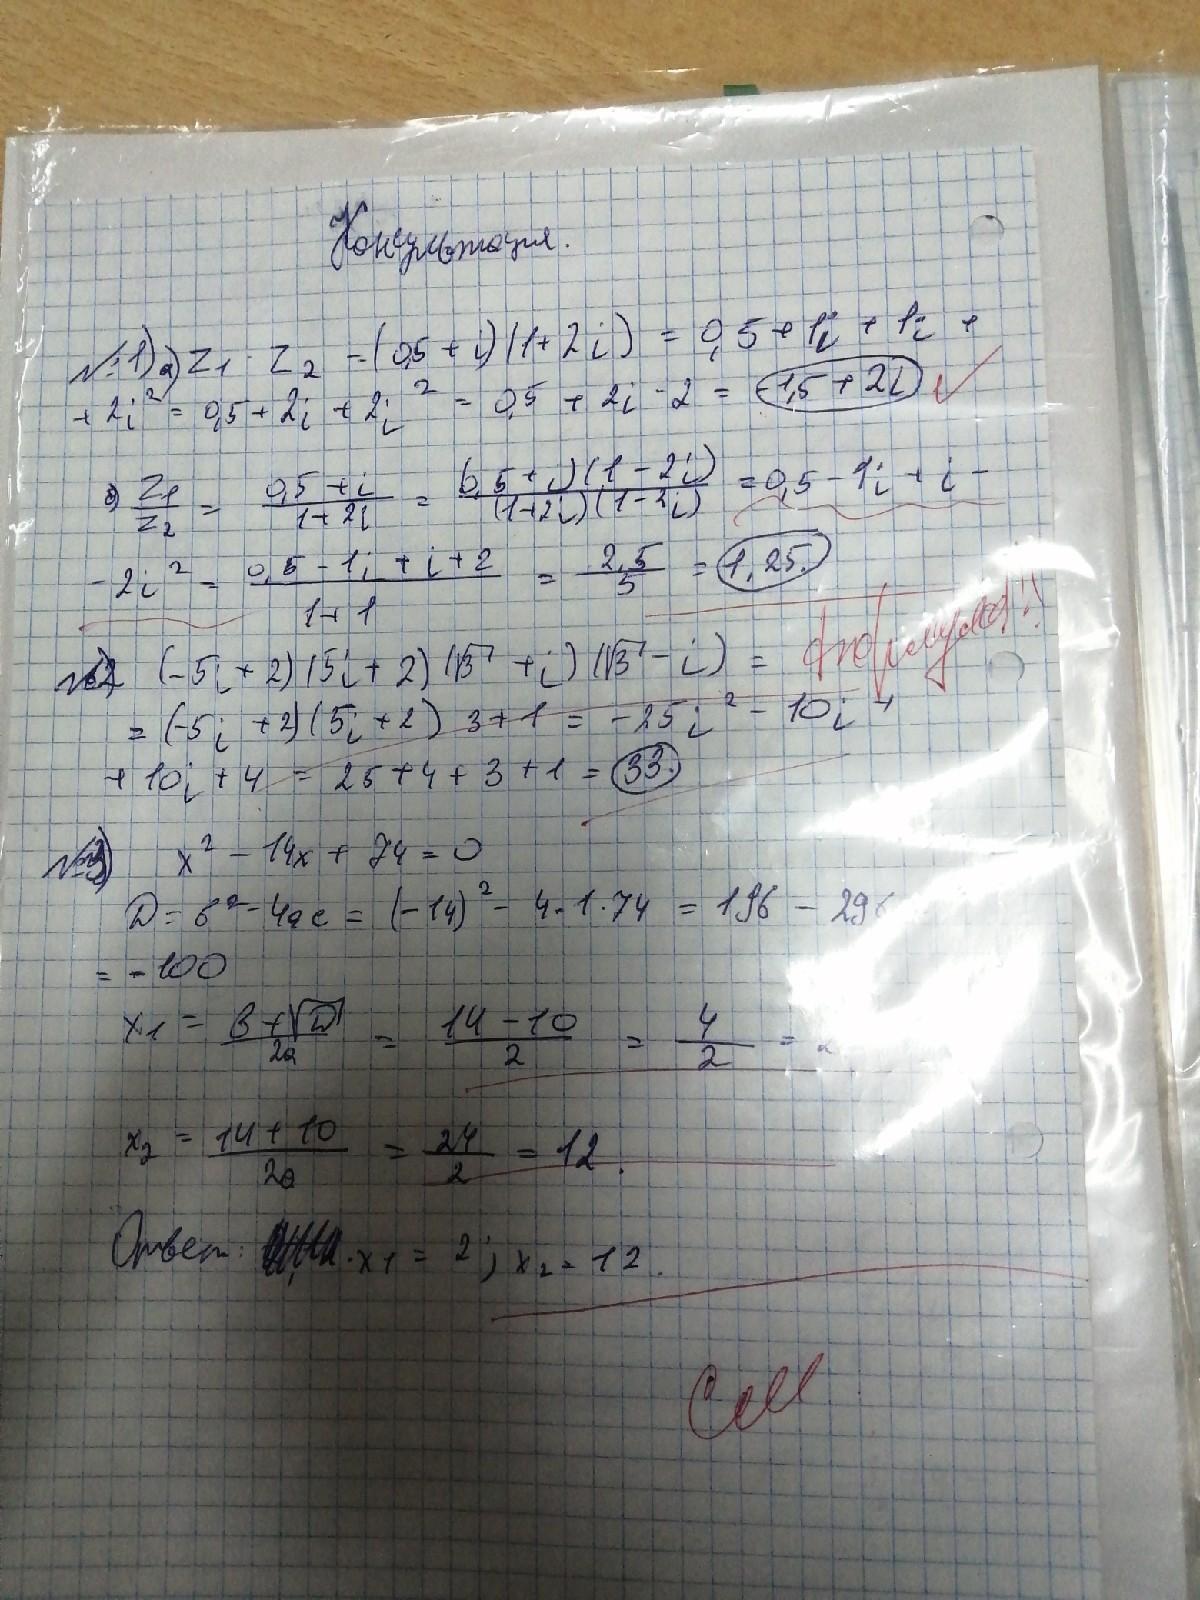 Консультация.
№1) а) Z1 · Z2 = (0,5 + i)(1 + 2i) = 0,5 + 1i + 1i +
+ 2i² = 0,5 + 2i + 2i² = 0,5 + 2i - 2 = -1,5 + 2i ✓
Z1/Z2 = (0,5 + i)/(1 + 2i) = (0,5 + i)(1 - 2i)/(1 + 2i)(1 - 2i) = 0,5 - 1i + i -
- 2i² = (0,5 - 1i + i + 2)/(1 + 1) = 2,5/5 = 1,25.
формула!!
№2 (-5i + 2)(5i + 2)(√3 + i)(√3 - i) =
= (-5i + 2)(5i + 2) 3 + 1 = -25i² - 10i +
+ 10i + 4 = 25 + 4 + 3 + 1 = 33.
№3) x² - 14x + 74 = 0
D = b² - 4ac = (-14)² - 4 · 1 · 74 = 196 - 296
= -100
x1 = (b + √D)/2a = (14 - 10)/2 = 4/2 = 2
x2 = (14 + 10)/2a = 24/2 = 12.
Ответ: x1 = 2; x2 = 12.